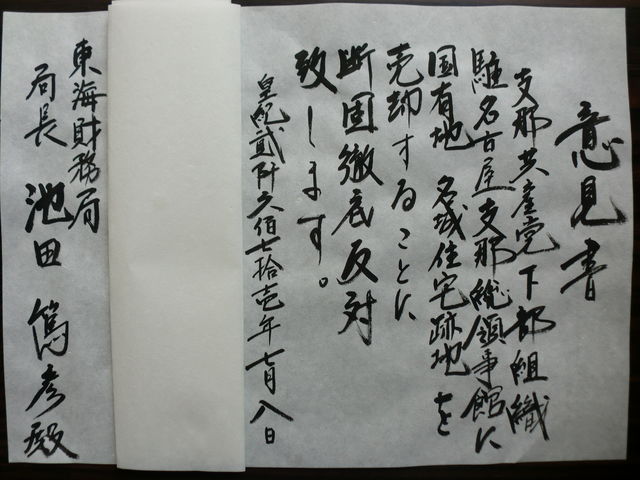 意見書
支那共産党下部組織
駐名古屋支那総領事館に
国有地 名城住宅跡地を
売却することに
断固徹底反対
致します。
皇紀貳阡六佰七拾壱年七月八日
東海財務局
局長 池田 篤彦殿